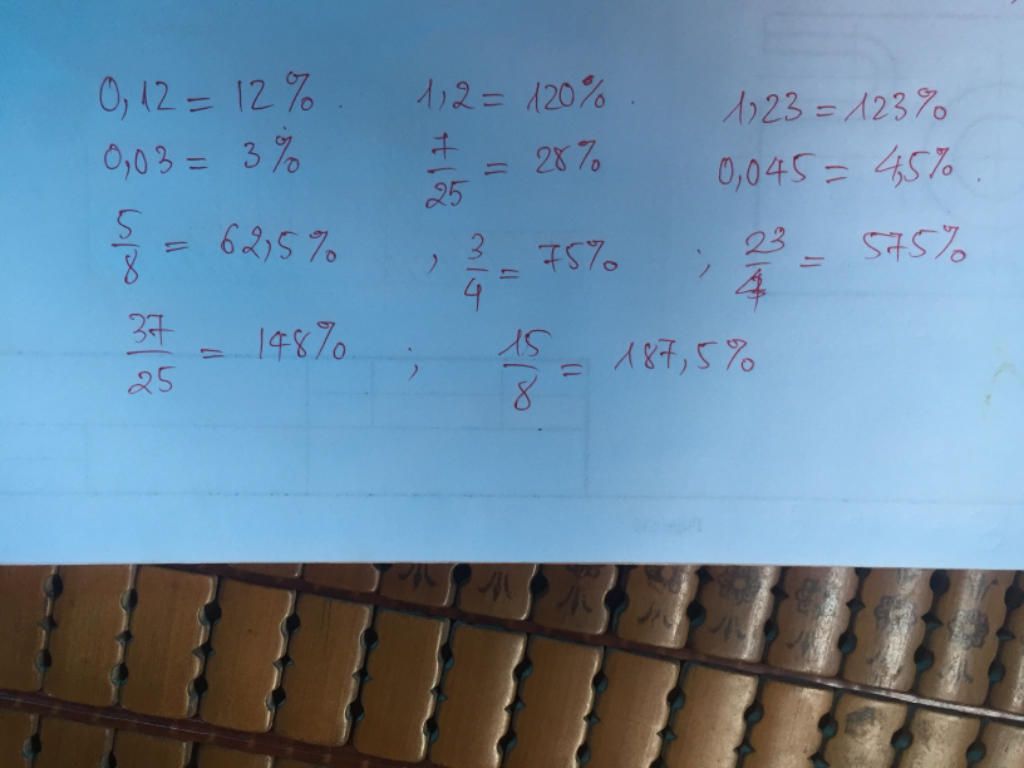 0,12 = 12% . 1,2 = 120% . 1,23 = 123%
0,03 = 3% 7/25 = 28% 0,045 = 4,5% .
5/8 = 62,5% , 3/4 = 75% ; 23/4 = 575%
37/25 = 148% ; 15/8 = 187,5%